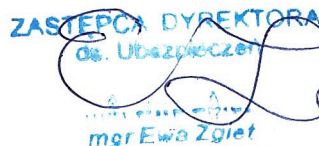 ZASTĘPCA DYREKTORA
ds. Ubezpieczeń
mgr Ewa Zgiet